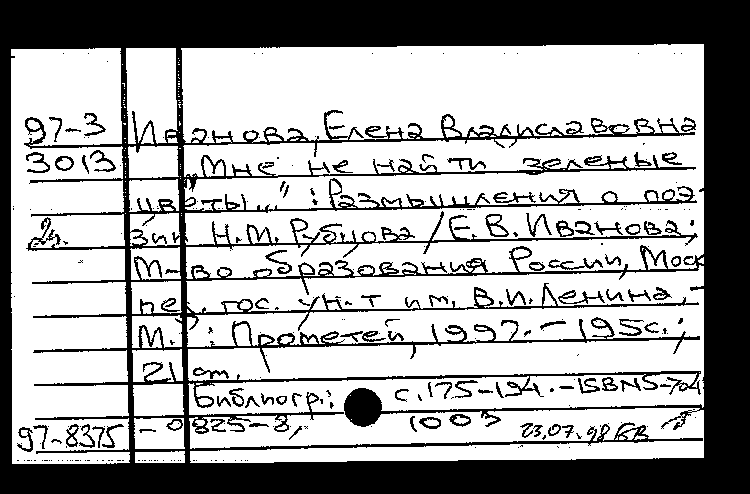 97-3 Иванова, Елена Владиславовна
3013 „Мне не найти зеленые
цветы..." : Размышления о поэ-
2ч. зии Н.М. Рубцова / Е.В. Иванова;
М-во образования России, Моск
пед. гос. ун-т им. В.И. Ленина, -
М. : Прометей, 1997. - 195с.;
21 cm.
Библиогр.: с.175-194. - ISBN5-704
97-8375 - 0825-8, 1003 23.07.98 БВ